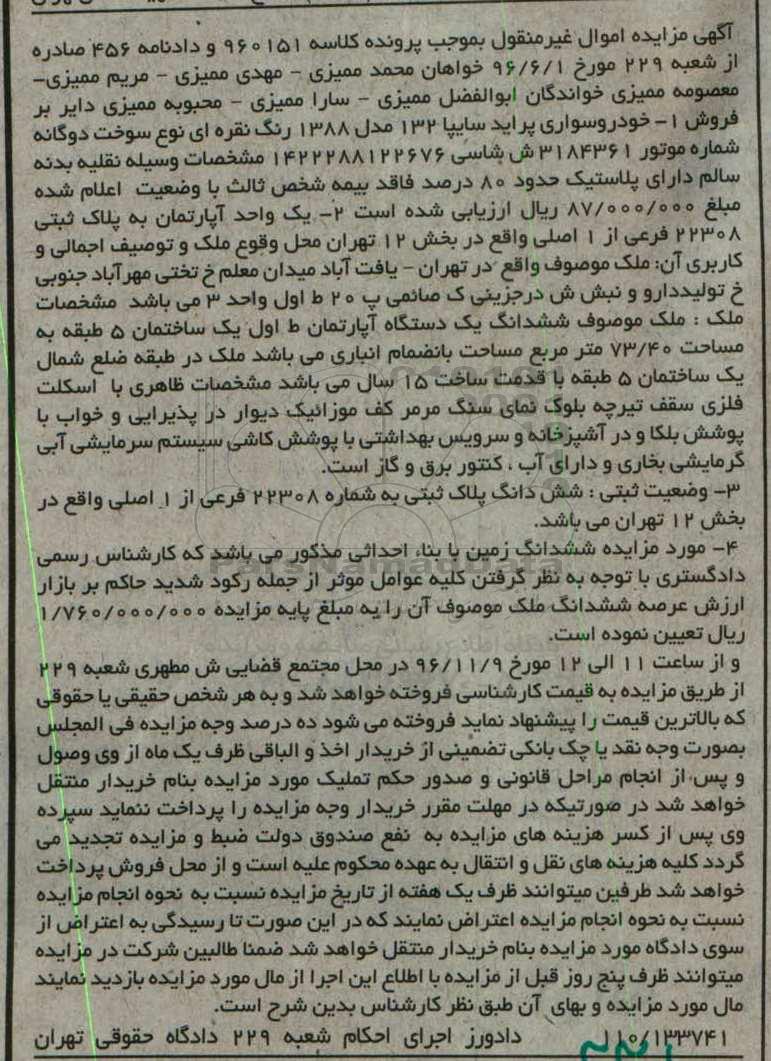 آگهی مزایده اموال غیرمنقول بموجب پرونده کلاسه ۹۶۰۱۵۱ و دادنامه ۴۵۶ صادره
از شعبه ۲۲۹ مورخ ۹۶/۶/۱ خواهان محمد ممیزی - مهدی ممیزی - مریم ممیزی-
معصومه ممیزی خواندگان ابوالفضل ممیزی - سارا ممیزی - محبوبه ممیزی دایر بر
فروش ۱- خودروسواری پراید سایپا ۱۳۲ مدل ۱۳۸۸ رنگ نقره ای نوع سوخت دوگانه
شماره موتور ۳۱۸۴۳۶۱ ش شاسی ۱۴۲۲۲۸۸۱۲۲۶۷۶ مشخصات وسیله نقلیه بدنه
سالم دارای پلاستیک حدود ۸۰ درصد فاقد بیمه شخص ثالث با وضعیت اعلام شده
مبلغ ۸۷/۰۰۰/۰۰۰ ریال ارزیابی شده است ۲- یک واحد آپارتمان به پلاک ثبتی
۲۲۳۰۸ فرعی از ۱ اصلی واقع در بخش ۱۲ تهران محل وقوع ملک و توصیف اجمالی و
کاربری آن: ملک موصوف واقع در تهران - یافت آباد میدان معلم خ تختی مهرآباد جنوبی
خ تولیددارو و نبش ش درجزینی ک صائمی پ ۲۰ ط اول واحد ۳ می باشد مشخصات
ملک : ملک موصوف ششدانگ یک دستگاه آپارتمان ط اول یک ساختمان ۵ طبقه به
مساحت ۷۳/۴۰ متر مربع مساحت بانضمام انباری می باشد ملک در طبقه ضلع شمال
یک ساختمان ۵ طبقه با قدمت ساخت ۱۵ سال می باشد مشخصات ظاهری با اسکلت
فلزی سقف تیرچه بلوک نمای سنگ مرمر کف موزائیک دیوار در پذیرایی و خواب با
پوشش بلکا و در آشپزخانه و سرویس بهداشتی با پوشش کاشی سیستم سرمایشی آبی
گرمایشی بخاری و دارای آب ، کنتور برق و گاز است.
۳- وضعیت ثبتی : شش دانگ پلاک ثبتی به شماره ۲۲۳۰۸ فرعی از ۱ اصلی واقع در
بخش ۱۲ تهران می باشد.
۴- مورد مزایده ششدانگ زمین با بناء احداثی مذکور می باشد که کارشناس رسمی
دادگستری با توجه به نظر گرفتن کلیه عوامل موثر از جمله رکود شدید حاکم بر بازار
ارزش عرصه ششدانگ ملک موصوف آن را به مبلغ پایه مزایده ۱/۷۶۰/۰۰۰/۰۰۰
ریال تعیین نموده است.
و از ساعت ۱۱ الی ۱۲ مورخ ۹۶/۱۱/۹ در محل مجتمع قضایی ش مطهری شعبه ۲۲۹
از طریق مزایده به قیمت کارشناسی فروخته خواهد شد و به هر شخص حقیقی یا حقوقی
که بالاترین قیمت را پیشنهاد نماید فروخته می شود ده درصد وجه مزایده فی المجلس
بصورت وجه نقد یا چک بانکی تضمینی از خریدار اخذ و الباقی ظرف یک ماه از وی وصول
و پس از انجام مراحل قانونی و صدور حکم تملیک مورد مزایده بنام خریدار منتقل
خواهد شد در صورتیکه در مهلت مقرر خریدار وجه مزایده را پرداخت ننماید سپرده
وی پس از کسر هزینه های مزایده به نفع صندوق دولت ضبط و مزایده تجدید می
گردد کلیه هزینه های نقل و انتقال به عهده محکوم علیه است و از محل فروش پرداخت
خواهد شد طرفین میتوانند ظرف یک هفته از تاریخ مزایده نسبت به نحوه انجام مزایده
نسبت به نحوه انجام مزایده اعتراض نمایند که در این صورت تا رسیدگی به اعتراض از
سوی دادگاه مورد مزایده بنام خریدار منتقل خواهد شد ضمنا طالبین شرکت در مزایده
میتوانند ظرف پنج روز قبل از مزایده با اطلاع این اجرا از مال مورد مزایده بازدید نمایند
مال مورد مزایده و بهای آن طبق نظر کارشناس بدین شرح است.
۱۱۰/۱۳۳۷۴۱ دادورز اجرای احکام شعبه ۲۲۹ دادگاه حقوقی تهران